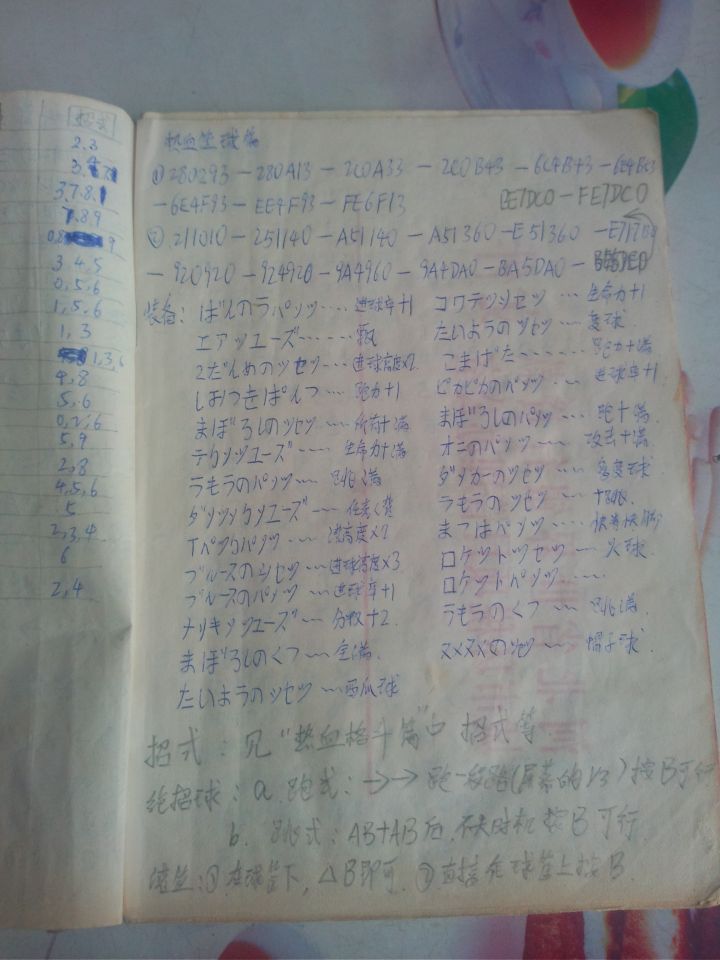 招式
2.3
3.7.8.
7.89
3.4.5
0.5.6
1,5.6
1,3
1,3,6
4,8
5.6
0,2,6
5,9
2,8
4,5,6
5
2,3,4
6
2,4
热血篮球篇
① 280293-280A13-2C0A33-2C0B43-6C4B43-6E4BC3
-6E4F93-EE4F93-FE6F13 BE7DC0-FE7DC0
② 211010-251140-A51140-A51360-E51360-
-920920-924920-9A4960-9A4DA0-BA5DA0-
装备: ばんのうパンツ…进球率+1 コウテツリセツ…生命力+1
エアシューズ……飘 たいようのツセツ…变球
2だんめのツセツ…进球高度x2 こまげた……跑力+满
しおつきぱんつ…跑力+1 ピカピカのパンツ…进球率+1
まぼろしのツセツ…所有+满 まぼろしのパンツ…跑+满
テクノツユーズ…生命力+满 オニのパンツ…攻击+满
うもうのパンツ…跳满 ダメカーのツセツ…
ダメツカツユーズ… うもうのツセツ…
Tバックパンツ…进高度x2 まつはパンツ…
ブルースのツセツ…进球高度x3 ロケットツセツ…火球
ブルースのパンツ…进球率+1 ロケットパンツ…
ナリキンツユーズ…分数+2 うもうのくつ…跳满
まぼろしのくつ…全满 ヌメヌメのツセツ…帽子球
たいようのツセツ…西瓜球
招式: 见"热血格斗篇"中招式等
绝招球: a. 跑式: →→ 跑一段路(屏幕的1/3)按B可行
b. 跳式: AB+AB后,不失时机按B可行
①在球篮下,△B即可. ②直接在球篮上按B.